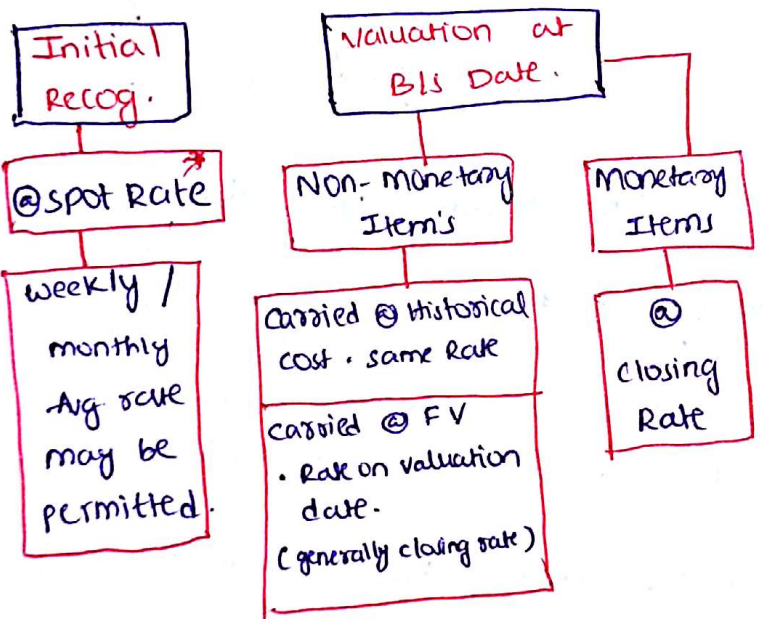 Initial
Recog.
@spot Rate
weekly /
monthly
Avg rate
may be
permitted.
Valuation at
B/s Date.
Non-monetary
Item's
carried @ Historical
cost. same Rate
carried @ FV
• Rate on valuation
date.
(generally closing rate)
monetary
Items
@
closing
Rate